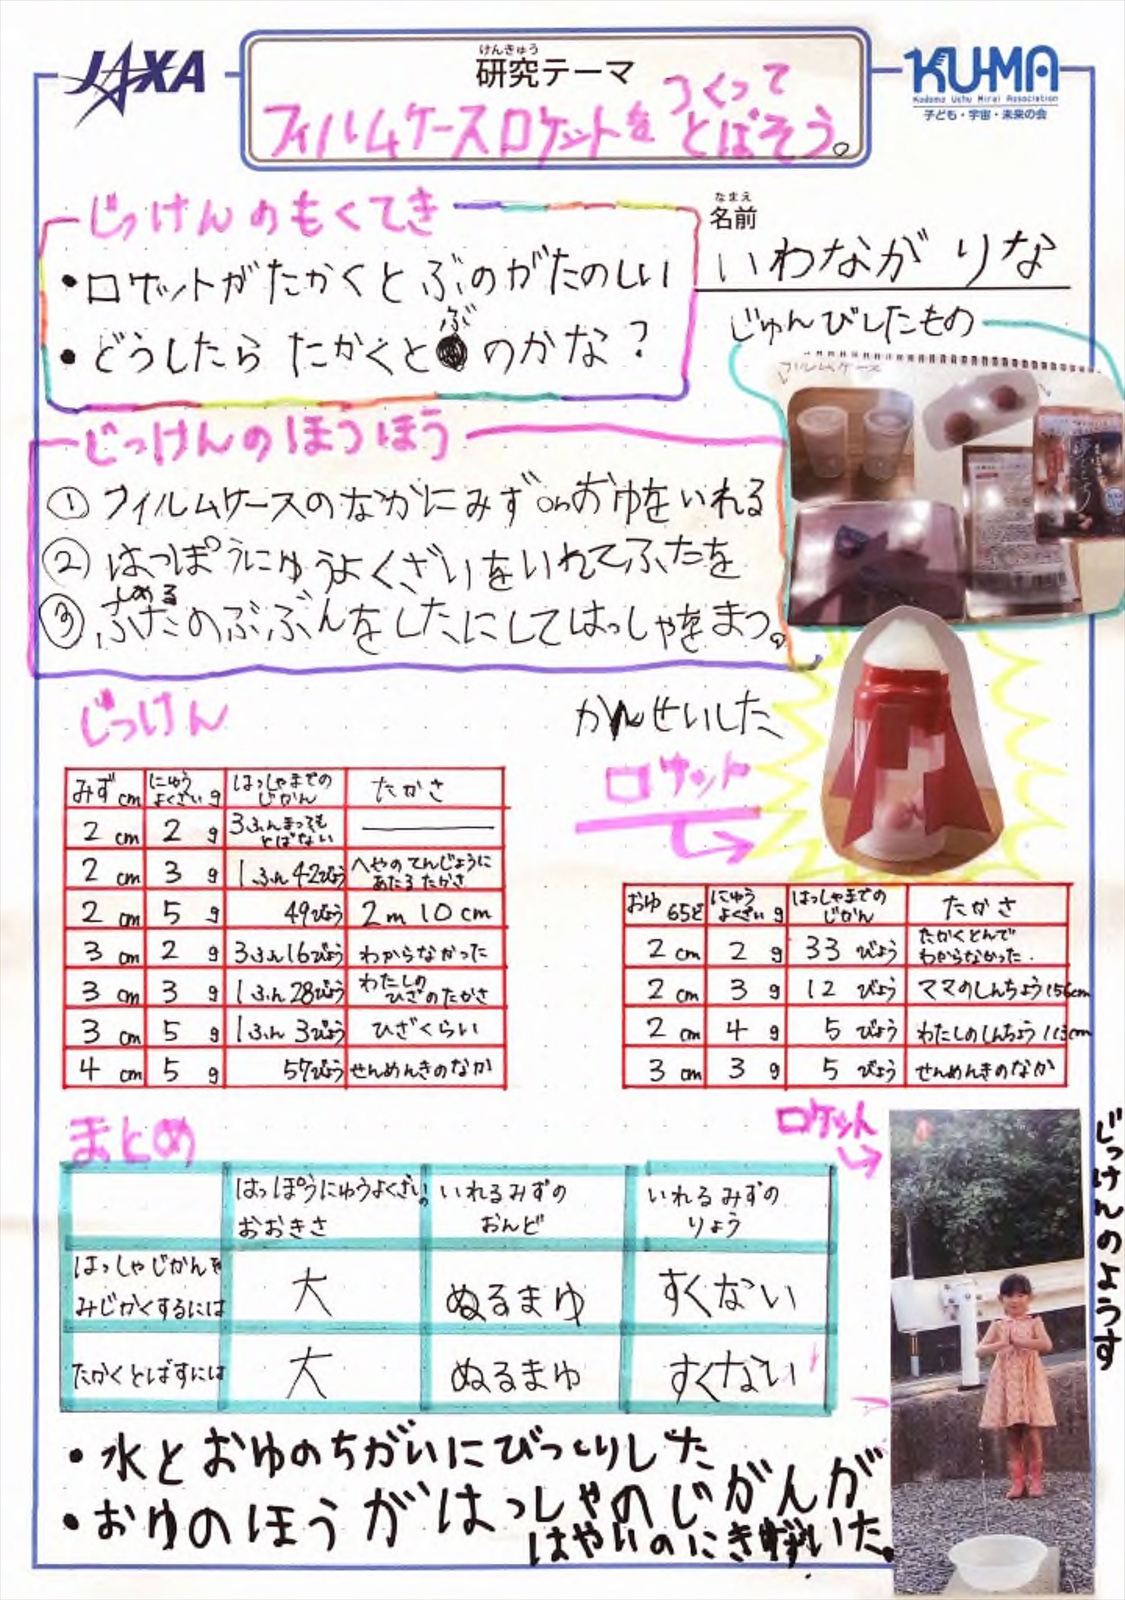 JAXA
けんきゅう
研究テーマ
フィルムケースロケットを つくって
とばそう。
KU-MA
Kodomo Uchu Mirai Association
子ども・宇宙・未来の会
じっけんのもくてき
・ロケットがたかくとぶのがたのしい
・どうしたら たかくと のかな?
ぶ
なまえ
名前
いわなが りな
じゅんびしたもの
フィルムケース
じっけんのほうほう
① フィルムケースのなかにみず orおゆをいれる
② はっぽうにゅうよくざいをいれてふたを
しめる
③ ふたのぶぶんをしたにしてはっしゃをまつ。
じっけん
みずcm にゅうよくざいg はっしゃまでのじかん たかさ
2cm 2g 3ふんまってもとばない ―
2cm 3g 1ふん42びょう へやのてんじょうにあたるたかさ
2cm 5g 49びょう 2m10cm
3cm 2g 3ふん16びょう わからなかった
3cm 3g 1ふん28びょう わたしのひざのたかさ
3cm 5g 1ふん3びょう ひざくらい
4cm 5g 57びょう せんめんきのなか
かんせいした
ロケット
おゆ65ど にゅうよくざいg はっしゃまでのじかん たかさ
2cm 2g 33びょう たかくとんでわからなかった.
2cm 3g 12びょう ママのしんちょう156cm
2cm 4g 5びょう わたしのしんちょう113cm
3cm 3g 5びょう せんめんきのなか
まとめ
はっぽうにゅうよくざいのおおきさ いれるみずのおんど いれるみずのりょう
はっしゃじかんをみじかくするには 大 ぬるまゆ すくない
たかくとばすには 大 ぬるまゆ すくない
ロケット
じっけんのようす
・水とおゆのちがいにびっくりした
・おゆのほうがはっしゃのじがんが
はやいのにきずいた。